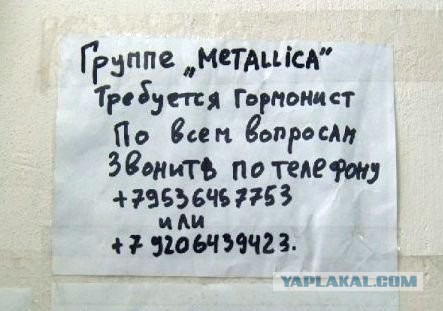 Группе „METALLiCA”
Требуется гормонист
По всем вопросам
Звонитв по телефону
+79536457753
или
+7 9206439423.
YAPLAKAL.COM